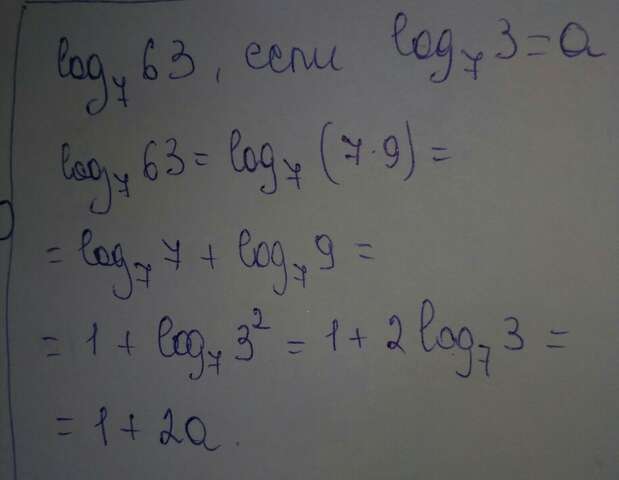 log₇ 63, если log₇ 3 = a
log₇ 63 = log₇ (7·9) =
= log₇ 7 + log₇ 9 =
= 1 + log₇ 3² = 1 + 2 log₇ 3 =
= 1 + 2a.